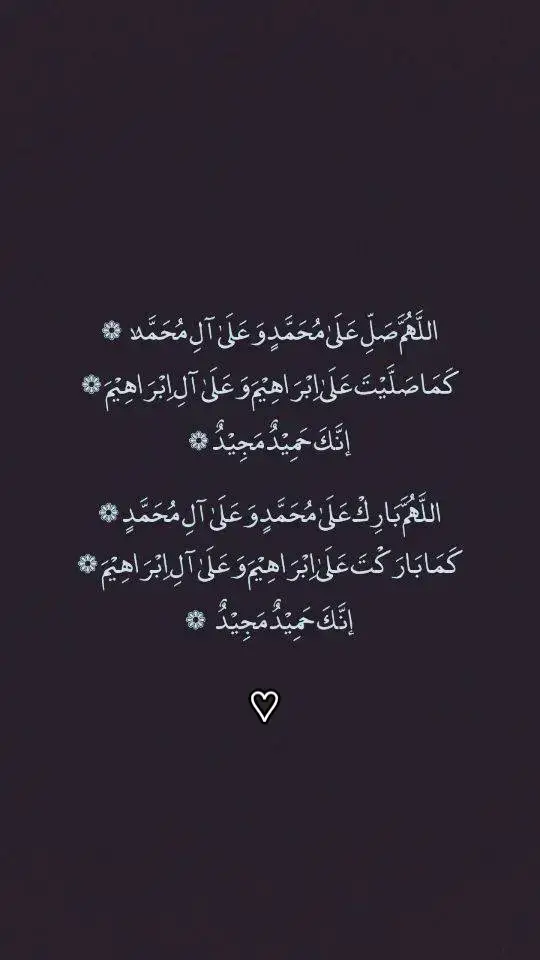 اللَّهُمَّ صَلِّ عَلَىٰ مُحَمَّدٍ وَ عَلَىٰ آلِ مُحَمَّدٍ ❁
كَمَا صَلَّيْتَ عَلَىٰ اِبْرَاهِيْمَ وَ عَلَىٰ آلِ اِبْرَاهِيْمَ ❁
إِنَّكَ حَمِيْدٌ مَجِيْدٌ ❁
اللَّهُمَّ بَارِكْ عَلَىٰ مُحَمَّدٍ وَ عَلَىٰ آلِ مُحَمَّدٍ ❁
كَمَا بَارَكْتَ عَلَىٰ اِبْرَاهِيْمَ وَ عَلَىٰ آلِ اِبْرَاهِيْمَ ❁
إِنَّكَ حَمِيْدٌ مَجِيْدٌ ❁